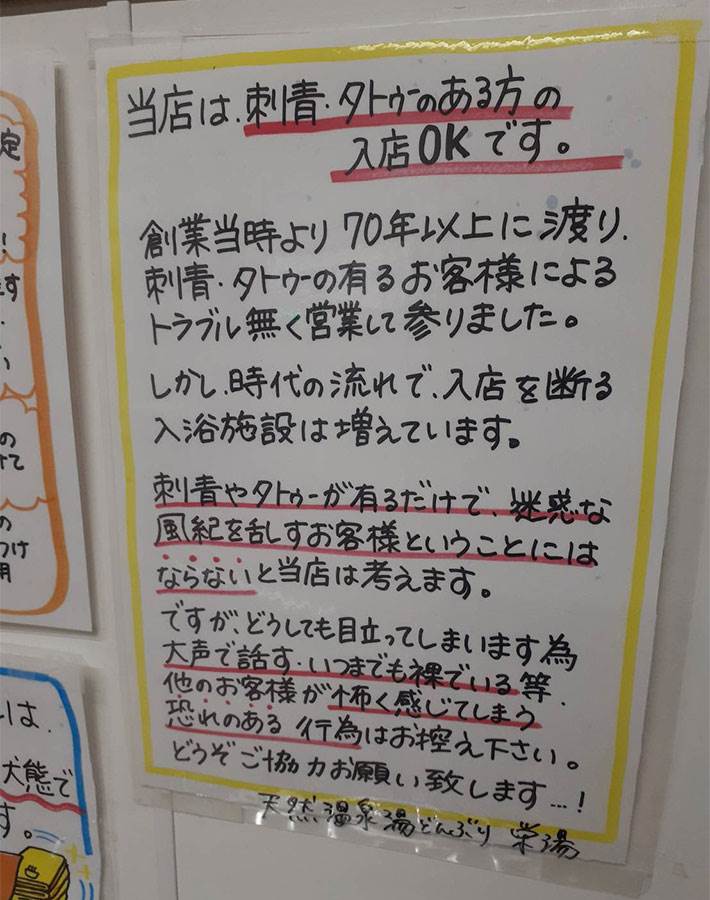 当店は、刺青・タトゥーのある方の
入店OKです。
創業当時より70年以上に渡り、
刺青・タトゥーの有るお客様による
トラブル無く営業して参りました。
しかし、時代の流れで、入店を断る
入浴施設は増えています。
刺青やタトゥーが有るだけで、迷惑な
風紀を乱すお客様ということには
ならないと当店は考えます。
ですが、どうしても目立ってしまいます為
大声で話す・いつまでも裸でいる等、
他のお客様が怖く感じてしまう
恐れのある行為はお控え下さい。
どうぞご協力お願い致します…!
天然温泉湯どんぶり 栄湯
定
!
ます
の
けて
の
つけ
用
は、
状態で
す。